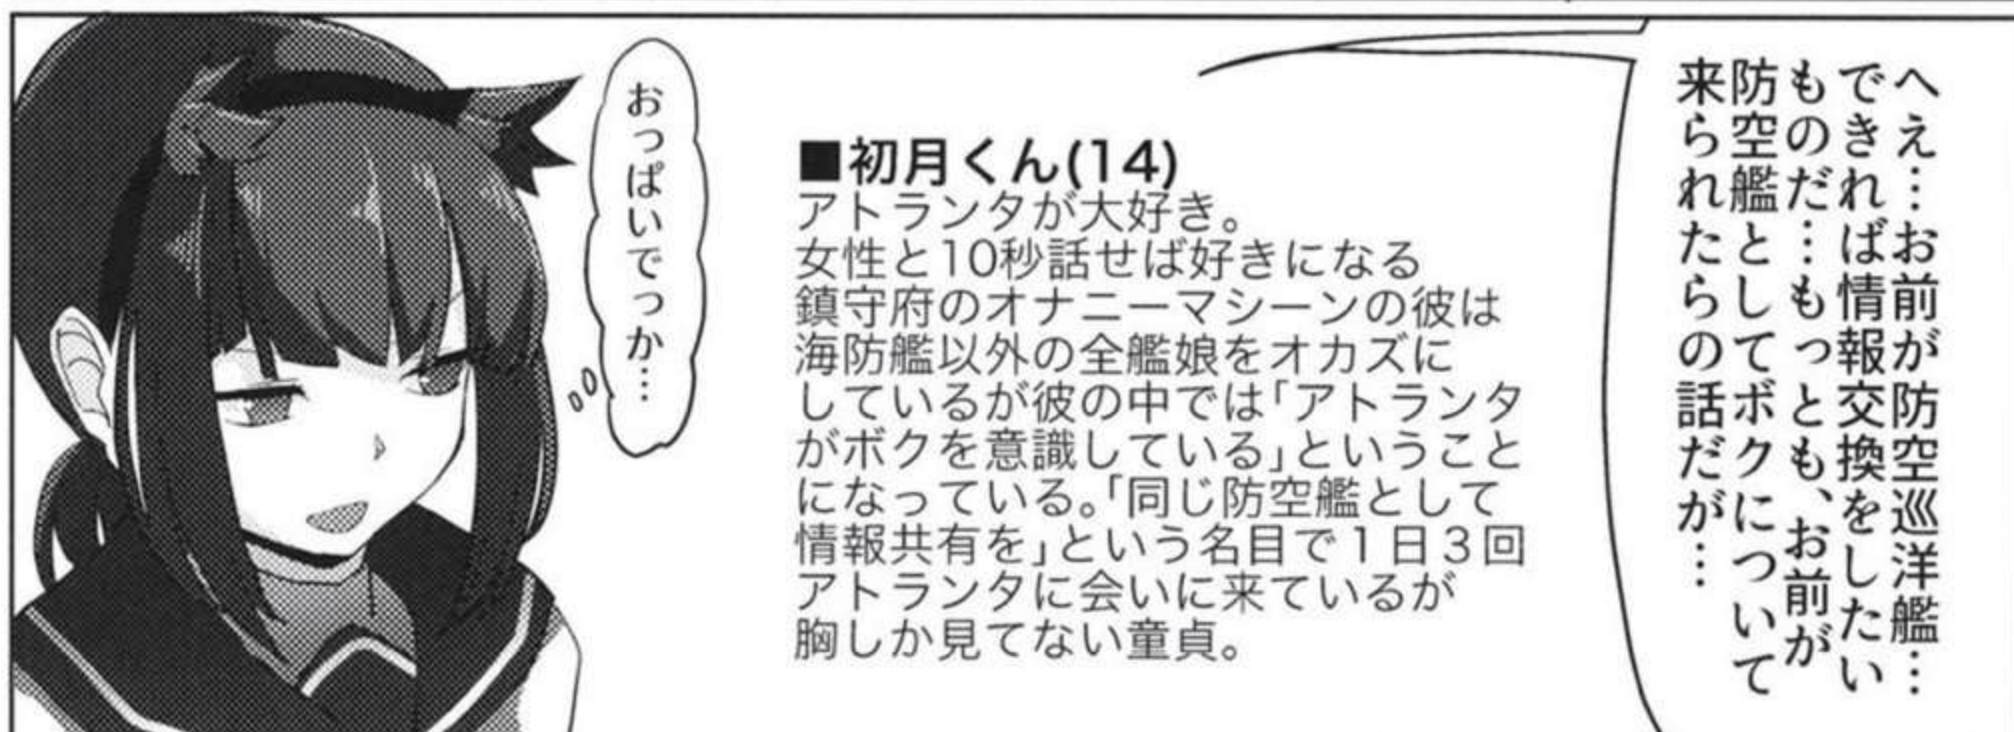 へえ…お前が防空巡洋艦…
できれば情報交換をしたい
ものだ…もっとも、お前が
防空艦としてボクについて
来られたらの話だが…
■初月くん(14)
アトランタが大好き。
女性と10秒話せば好きになる
鎮守府のオナニーマシーンの彼は
海防艦以外の全艦娘をオカズに
しているが彼の中では「アトランタ
がボクを意識している」ということ
になっている。「同じ防空艦として
情報共有を」という名目で1日3回
アトランタに会いに来ているが
胸しか見てない童貞。
おっぱいでっか…